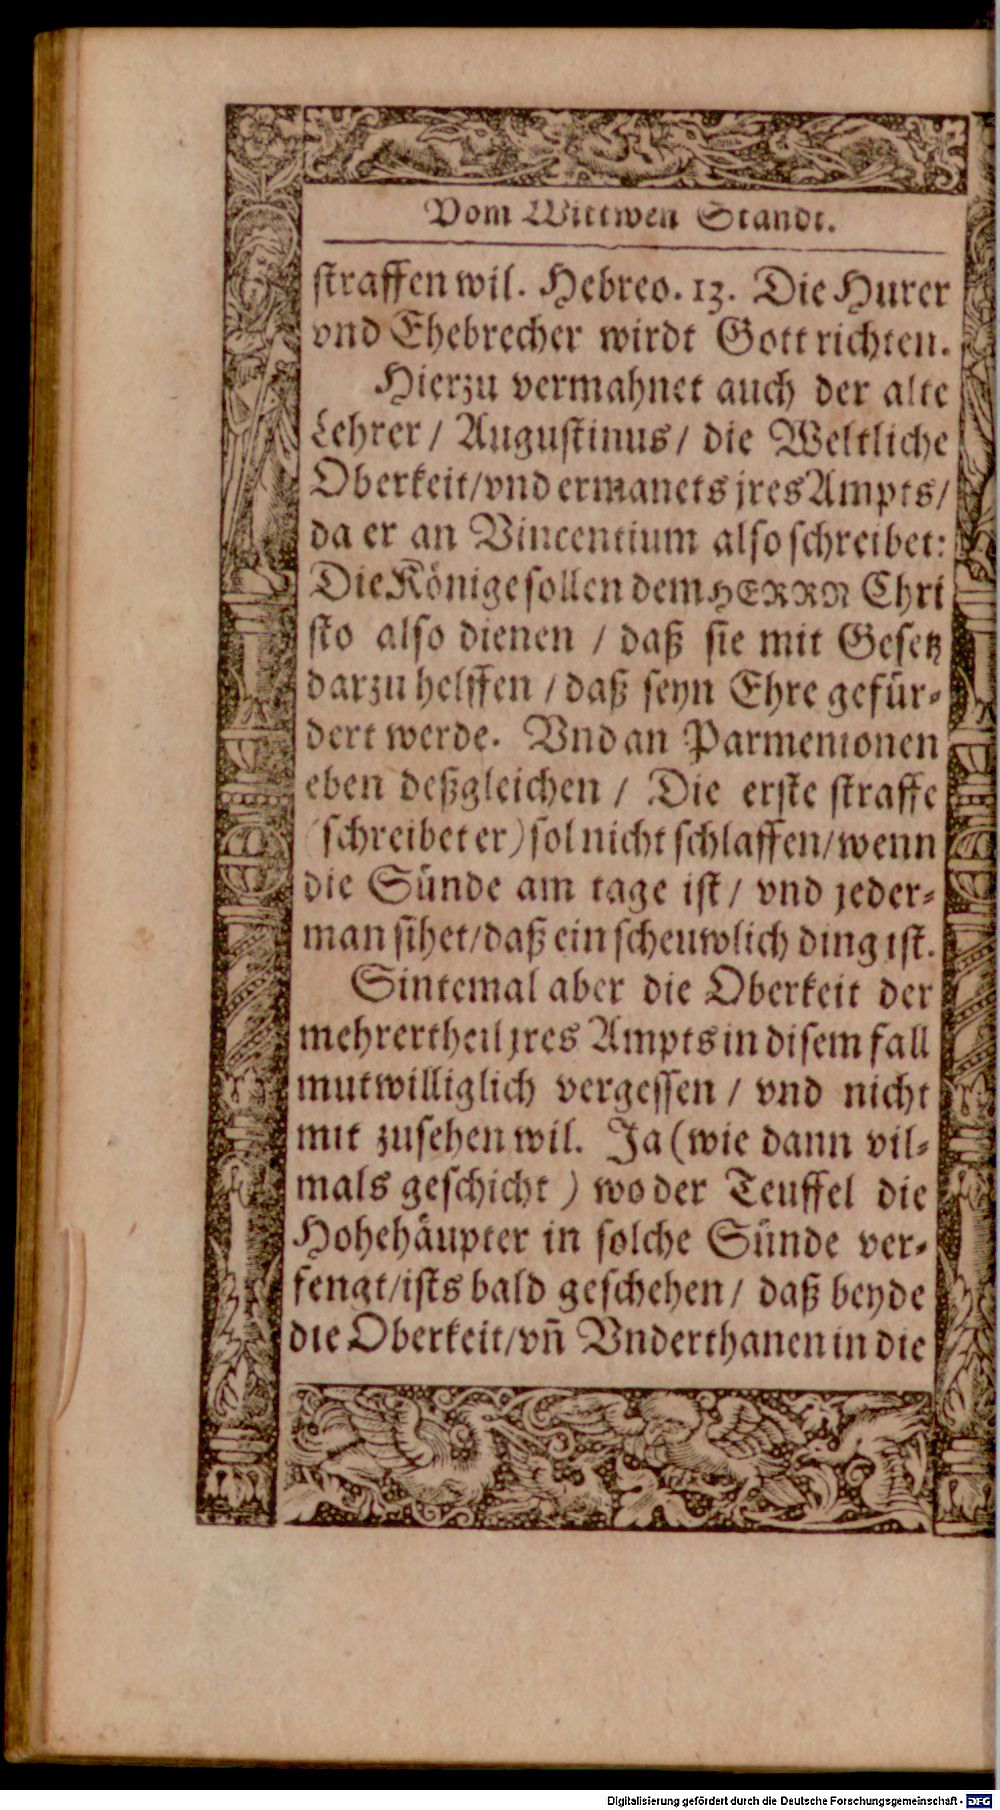 Vom Wittwen Standt.
straffen wil. Hebreo. 13. Die Hurer
vnd Ehebrecher wirdt Gott richten.
Hierzu vermahnet auch der alte
Lehrer / Augustinus / die Weltliche
Oberkeit/vnd ermanets jres Ampts/
da er an Vincentium also schreibet:
Die Könige sollen dem HERRN Chri
sto also dienen / daß sie mit Gesetz
darzu helffen / daß seyn Ehre gefür-
dert werde. Vnd an Parmenionen
eben deßgleichen / Die erste straffe
(schreibet er) sol nicht schlaffen/wenn
die Sünde am tage ist / vnd jeder-
man sihet/daß ein scheuwlich ding ist.
Sintemal aber die Oberkeit der
mehrertheil jres Ampts in disem fall
mutwilliglich vergessen / vnd nicht
mit zusehen wil. Ja (wie dann vil-
mals geschicht ) wo der Teuffel die
Hohehäupter in solche Sünde ver-
fengt/ists bald geschehen / daß beyde
die Oberkeit/vñ Vnderthanen in die
Digitalisierung gefördert durch die Deutsche Forschungsgemeinschaft - DFG